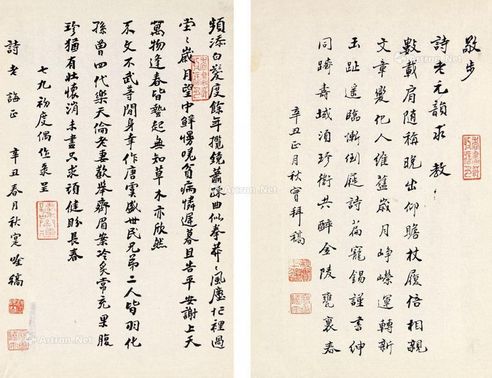 敬步
詩老元韻求 教
數載肩隨稱晚出仰瞻杖履倍相親
文章變化人維舊歲月崢嶸運轉新
玉趾遙臨慚倒屣詩篇寵錫謹書紳
同躋壽域珍衛共醉金陵甕裏春
辛丑正月秋甯拜稿
頻添白髮度餘年攬鏡蕭疎曲似拳莽莽風塵忙裡過
堂堂歲月望中貧病憐遲暮且告平安謝上天
萬物逢春皆起無知草木亦欣然
不文不武等閒身幸作唐虞盛世民兄弟二人皆羽化
孫曾四代樂天倫老妻歡舉齊眉案冷炙常充果腹
珍猶有壯懷消未盡只求頑健盼長春
七九初度偶作錄呈
詩老誨正 辛丑春月秋甯稿